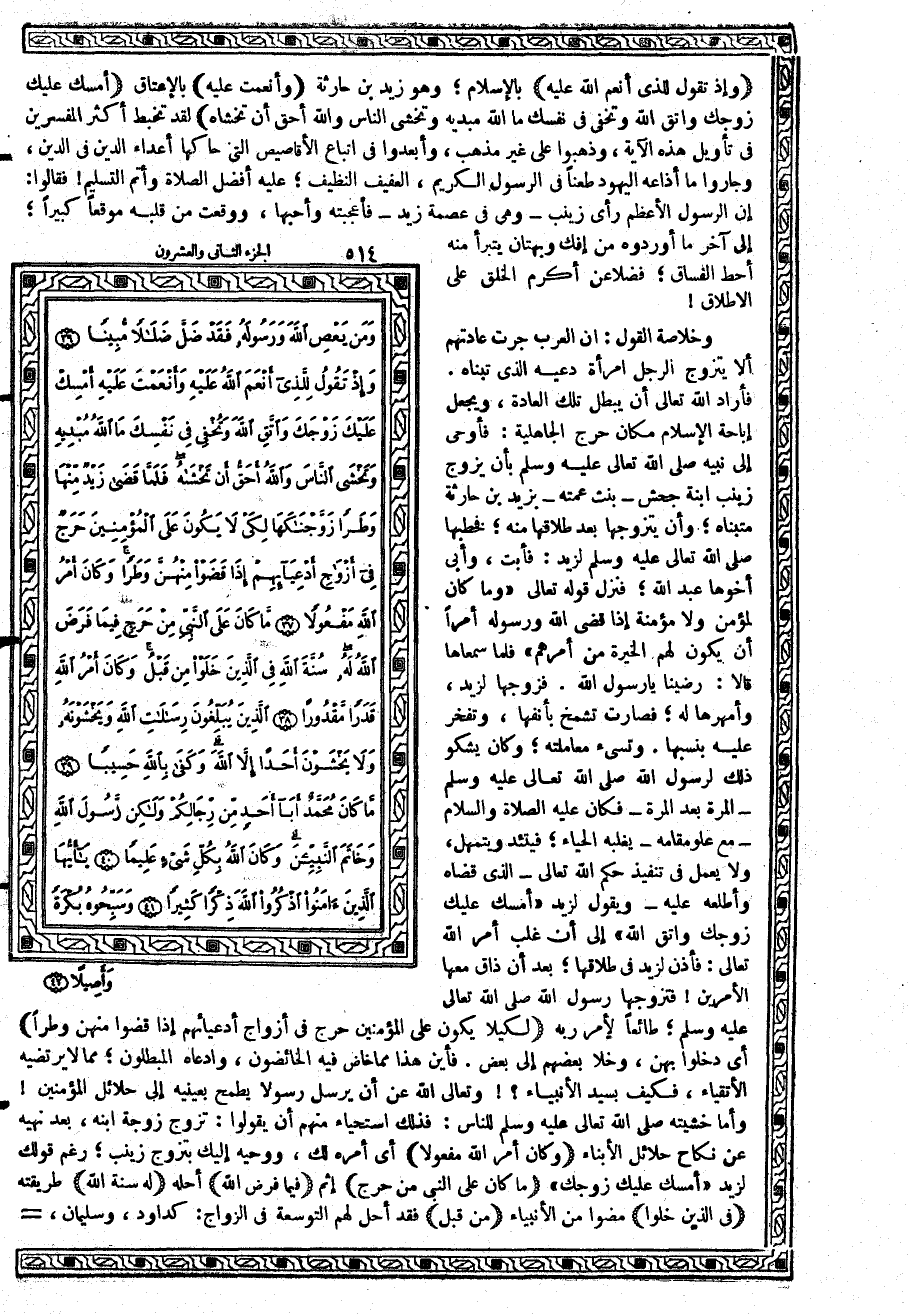 (وإذ تقول للذى أنعم الله عليه) بالإسلام ؛ وهو زيد بن حارثة (وأنعمت عليه) بالإعتاق (أمسك عليك
زوجك واتق الله وتخفى فى نفسك ما الله مبديه وتخشى الناس والله أحق أن تخشاه) لقد تخبط أكثر المفسرين
فى تأويل هذه الآية ، وذهبوا على غير مذهب ، وأبعدوا فى اتباع الأقاصيص التى حاكها أعداء الدين فى الدين ،
وجاروا ما أذاعه اليهود طعناً فى الرسول الكريم ، العفيف النظيف ؛ عليه أفضل الصلاة وأتم التسليم ! فقالوا:
إن الرسول الأعظم رأى زينب ــ وهى فى عصمة زيد ــ فأعجبته وأحبها ، ووقعت من قلبه موقعاً كبيراً ؛
إلى آخر ما أوردوه من إفك وبهتان يتبرأ منه
أحط الفساق ؛ فضلا عن أكرم الخلق على
الاطلاق !
وخلاصة القول : ان العرب جرت عادتهم
ألا يتزوج الرجل امرأة دعيه الذى تبناه .
فأراد الله تعالى أن يبطل تلك العادة ، ويجعل
إباحة الإسلام مكان حرج الجاهلية : فأوحى
إلى نبيه صلى الله تعالى عليه وسلم بأن يزوج
زينب ابنة جحش ــ بنت عمته ــ بزيد بن حارثة
متبناه ؛ وأن يتزوجها بعد طلاقها منه ؛ فخطبها
صلى الله تعالى عليه وسلم لزيد : فأبت ، وأبى
أخوها عبد الله ؛ فنزل قوله تعالى «وما كان
لمؤمن ولا مؤمنة إذا قضى الله ورسوله أمراً
أن يكون لهم الخيرة من أمرهم» فلما سمعاها
قالا : رضينا يارسول الله . فزوجها لزيد ،
وأمهرها له ؛ فصارت تشمخ بأنفها ، وتفخر
عليه بنسبها . وتسىء معاملته ؛ وكان يشكو
ذلك لرسول الله صلى الله تعالى عليه وسلم
ــ المرة بعد المرة ــ فكان عليه الصلاة والسلام
ــ مع علو مقامه ــ يغلبه الحياء ؛ فيتئد ويتمهل،
ولا يعمل فى تنفيذ حكم الله تعالى ــ الذى قضاه
وأطلعه عليه ــ ويقول لزيد «أمسك عليك
زوجك واتق الله» إلى أن غلب أمر الله
تعالى : فأذن لزيد فى طلاقها ؛ بعد أن ذاق معها
الأمرين ! فتزوجها رسول الله صلى الله تعالى
الجزء الثانى والعشرون ٥١٤
وَمَن يَعْصِ ٱللَّهَ وَرَسُولَهُۥ فَقَدْ ضَلَّ ضَلَـٰلًا مُّبِينًا ۝٣٦
وَإِذْ تَقُولُ لِلَّذِىٓ أَنْعَمَ ٱللَّهُ عَلَيْهِ وَأَنْعَمْتَ عَلَيْهِ أَمْسِكْ
عَلَيْكَ زَوْجَكَ وَٱتَّقِ ٱللَّهَ وَتُخْفِى فِى نَفْسِكَ مَا ٱللَّهُ مُبْدِيهِ
وَتَخْشَى ٱلنَّاسَ وَٱللَّهُ أَحَقُّ أَن تَخْشَـٰهُ ۖ فَلَمَّا قَضَىٰ زَيْدٌ مِّنْهَا
وَطَرًا زَوَّجْنَـٰكَهَا لِكَىْ لَا يَكُونَ عَلَى ٱلْمُؤْمِنِينَ حَرَجٌ
فِىٓ أَزْوَٰجِ أَدْعِيَآئِهِمْ إِذَا قَضَوْا۟ مِنْهُنَّ وَطَرًا ۚ وَكَانَ أَمْرُ
ٱللَّهِ مَفْعُولًا ۝٣٧ مَّا كَانَ عَلَى ٱلنَّبِىِّ مِنْ حَرَجٍ فِيمَا فَرَضَ
ٱللَّهُ لَهُۥ ۖ سُنَّةَ ٱللَّهِ فِى ٱلَّذِينَ خَلَوْا۟ مِن قَبْلُ ۚ وَكَانَ أَمْرُ ٱللَّهِ
قَدَرًا مَّقْدُورًا ۝٣٨ ٱلَّذِينَ يُبَلِّغُونَ رِسَـٰلَـٰتِ ٱللَّهِ وَيَخْشَوْنَهُۥ
وَلَا يَخْشَوْنَ أَحَدًا إِلَّا ٱللَّهَ ۗ وَكَفَىٰ بِٱللَّهِ حَسِيبًا ۝٣٩
مَّا كَانَ مُحَمَّدٌ أَبَآ أَحَدٍ مِّن رِّجَالِكُمْ وَلَـٰكِن رَّسُولَ ٱللَّهِ
وَخَاتَمَ ٱلنَّبِيِّـۧنَ ۗ وَكَانَ ٱللَّهُ بِكُلِّ شَىْءٍ عَلِيمًا ۝٤٠ يَـٰٓأَيُّهَا
ٱلَّذِينَ ءَامَنُوا۟ ٱذْكُرُوا۟ ٱللَّهَ ذِكْرًا كَثِيرًا ۝٤١ وَسَبِّحُوهُ بُكْرَةً
وَأَصِيلًا ۝٤٢
عليه وسلم ؛ طائعاً لأمر ربه (لكيلا يكون على المؤمنين حرج فى أزواج أدعيائهم إذا قضوا منهن وطراً)
أى دخلوا بهن ، وخلا بعضهم إلى بعض . فأين هذا مما خاض فيه الخائضون ، وادعاه المبطلون ؛ مما لا يرتضيه
الأتقياء ، فكيف بسيد الأنبياء ؟ ! وتعالى الله عن أن يرسل رسولا يطمح بعينيه إلى حلائل المؤمنين !
وأما خشيته صلى الله تعالى عليه وسلم للناس : فذلك استحياء منهم أن يقولوا : تزوج زوجة ابنه ، بعد نهيه
عن نكاح حلائل الأبناء (وكان أمر الله مفعولا) أى أمره لك ، ووحيه إليك بتزوج زينب ؛ رغم قولك
لزيد «أمسك عليك زوجك» (ما كان على النبى من حرج) إثم (فيما فرض الله) أحله (له سنة الله) طريقته
(فى الذين خلوا) مضوا من الأنبياء (من قبل) فقد أحل لهم التوسعة فى الزواج: كداود ، وسليمان ، =